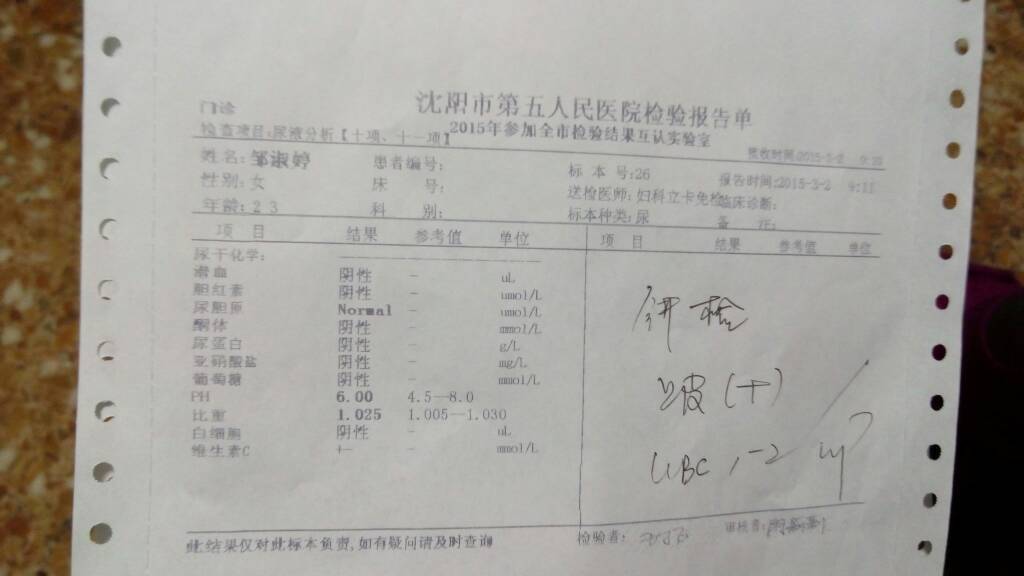 沈阳市第五人民医院检验报告单
门诊
2015年参加全市检验结果互认实验室
检查项目:尿液分析【十项、十一项】
接收时间:2015-3-2
姓名:邹淑婷 患者编号: 标本号:26 报告时间:2015-3-2 9:11
性别:女 床号: 送检医师:妇科立卡免检 临床诊断:
年龄:23 科别: 标本种类:尿 备注:
项目 结果 参考值 单位 项目 结果 参考值 单位
尿干化学:
潜血 阴性 - uL
胆红素 阴性 - umol/L
尿胆原 Normal - umol/L
酮体 阴性 - mmol/L
尿蛋白 阴性 - g/L
亚硝酸盐 阴性 - mg/L
葡萄糖 阴性 - mmol/L
PH 6.00 4.5—8.0
比重 1.025 1.005—1.030
白细胞 阴性 - uL
维生素C +- - mmol/L
镜检
上皮(+)
WBC 1-2
此结果仅对此标本负责,如有疑问请及时查询
检验者:
审核者: